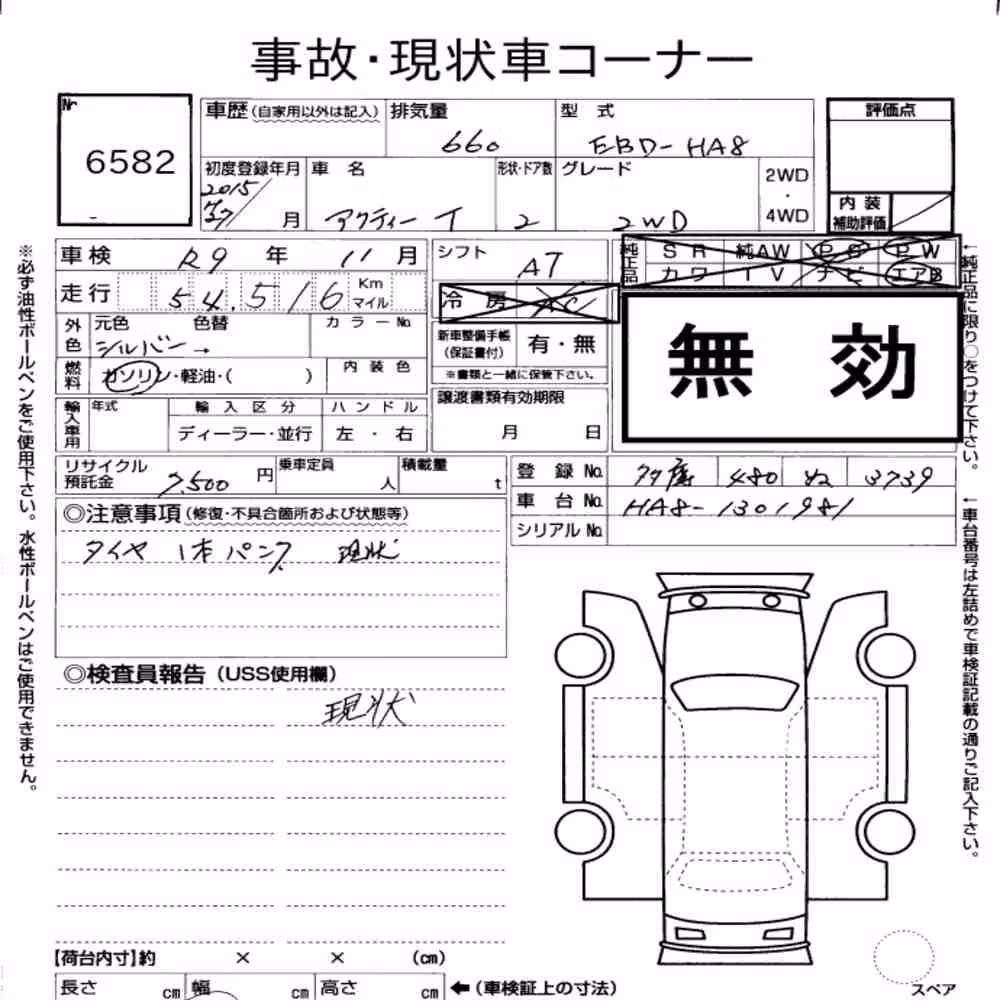 事故・現状車コーナー
Nr
6582
車歴(自家用以外は記入) 排気量 型式 評価点
660 EBD-HA8
初度登録年月 車名 形状・ドア数 グレード 2WD・4WD 内装補助評価
2015 27/ 月 アクティー T 2 2WD
車検 R9年 11月 シフト AT 純正品 SR 純AW PS PW
カワ TV ナビ エアB
走行 54,516 Km マイル 冷房 AC
無効
外色 元色 色替 カラーNo. 新車整備手帳(保証書付) 有・無
シルバー →
※書類と一緒に保管下さい。
燃料 ガソリン・軽油・( ) 内装色
譲渡書類有効期限
月 日
輸入車用 年式 輸入区分 ハンドル
ディーラー・並行 左・右
リサイクル預託金 7,500円 乗車定員 人 積載量 t
登録No. 多摩 480 ぬ 3739
車台No. HA8-1301981
シリアルNo.
◎注意事項(修復・不具合箇所および状態等)
タイヤ 1本パンク 現状
◎検査員報告(USS使用欄)
現状
【荷台内寸】約 × × (cm)
長さ cm 幅 cm 高さ cm ←(車検証上の寸法)
スペア
※必ず油性ボールペンをご使用下さい。水性ボールペンはご使用できません。
←純正品に限り○をつけて下さい。
←車台番号は左詰めで車検証記載の通りご記入下さい。